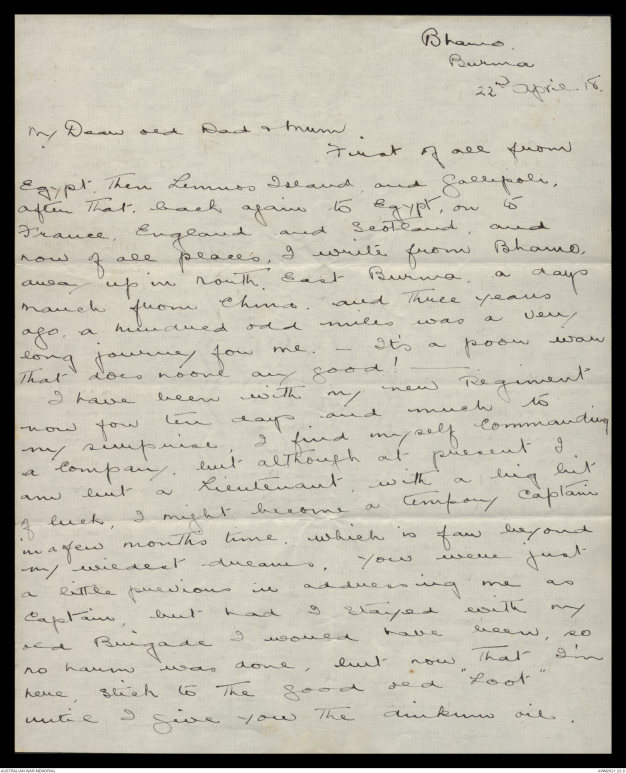 Bhamo.
Burma
22nd April. 18.
My Dear old Dad & Mum
First of all from
Egypt, then Lemnos Island, and Gallipoli,
after that, back again to Egypt, on to
France, England and Scotland, and
now of all places, I write from Bhamo,
away up in north East Burma, a days
march from China. and three years
ago, a hundred odd miles was a very
long journey for me. – It's a poor war
that does noone any good!
I have been with my new Regiment
now for ten days and much to
my surprise, I find myself Commanding
a Company, but although at present I
am but a Lieutenant, with a big bit
of luck, I might become a tempory Captain
in a few months time, which is far beyond
my wildest dreams, you were just
a little previous in addressing me as
Captain, but had I stayed with my
old Brigade I would have been, so
no harm was done, but now that I'm
here, stick to the good old "Loot"
until I give you the dinkum oil.
AUSTRALIAN WAR MEMORIAL